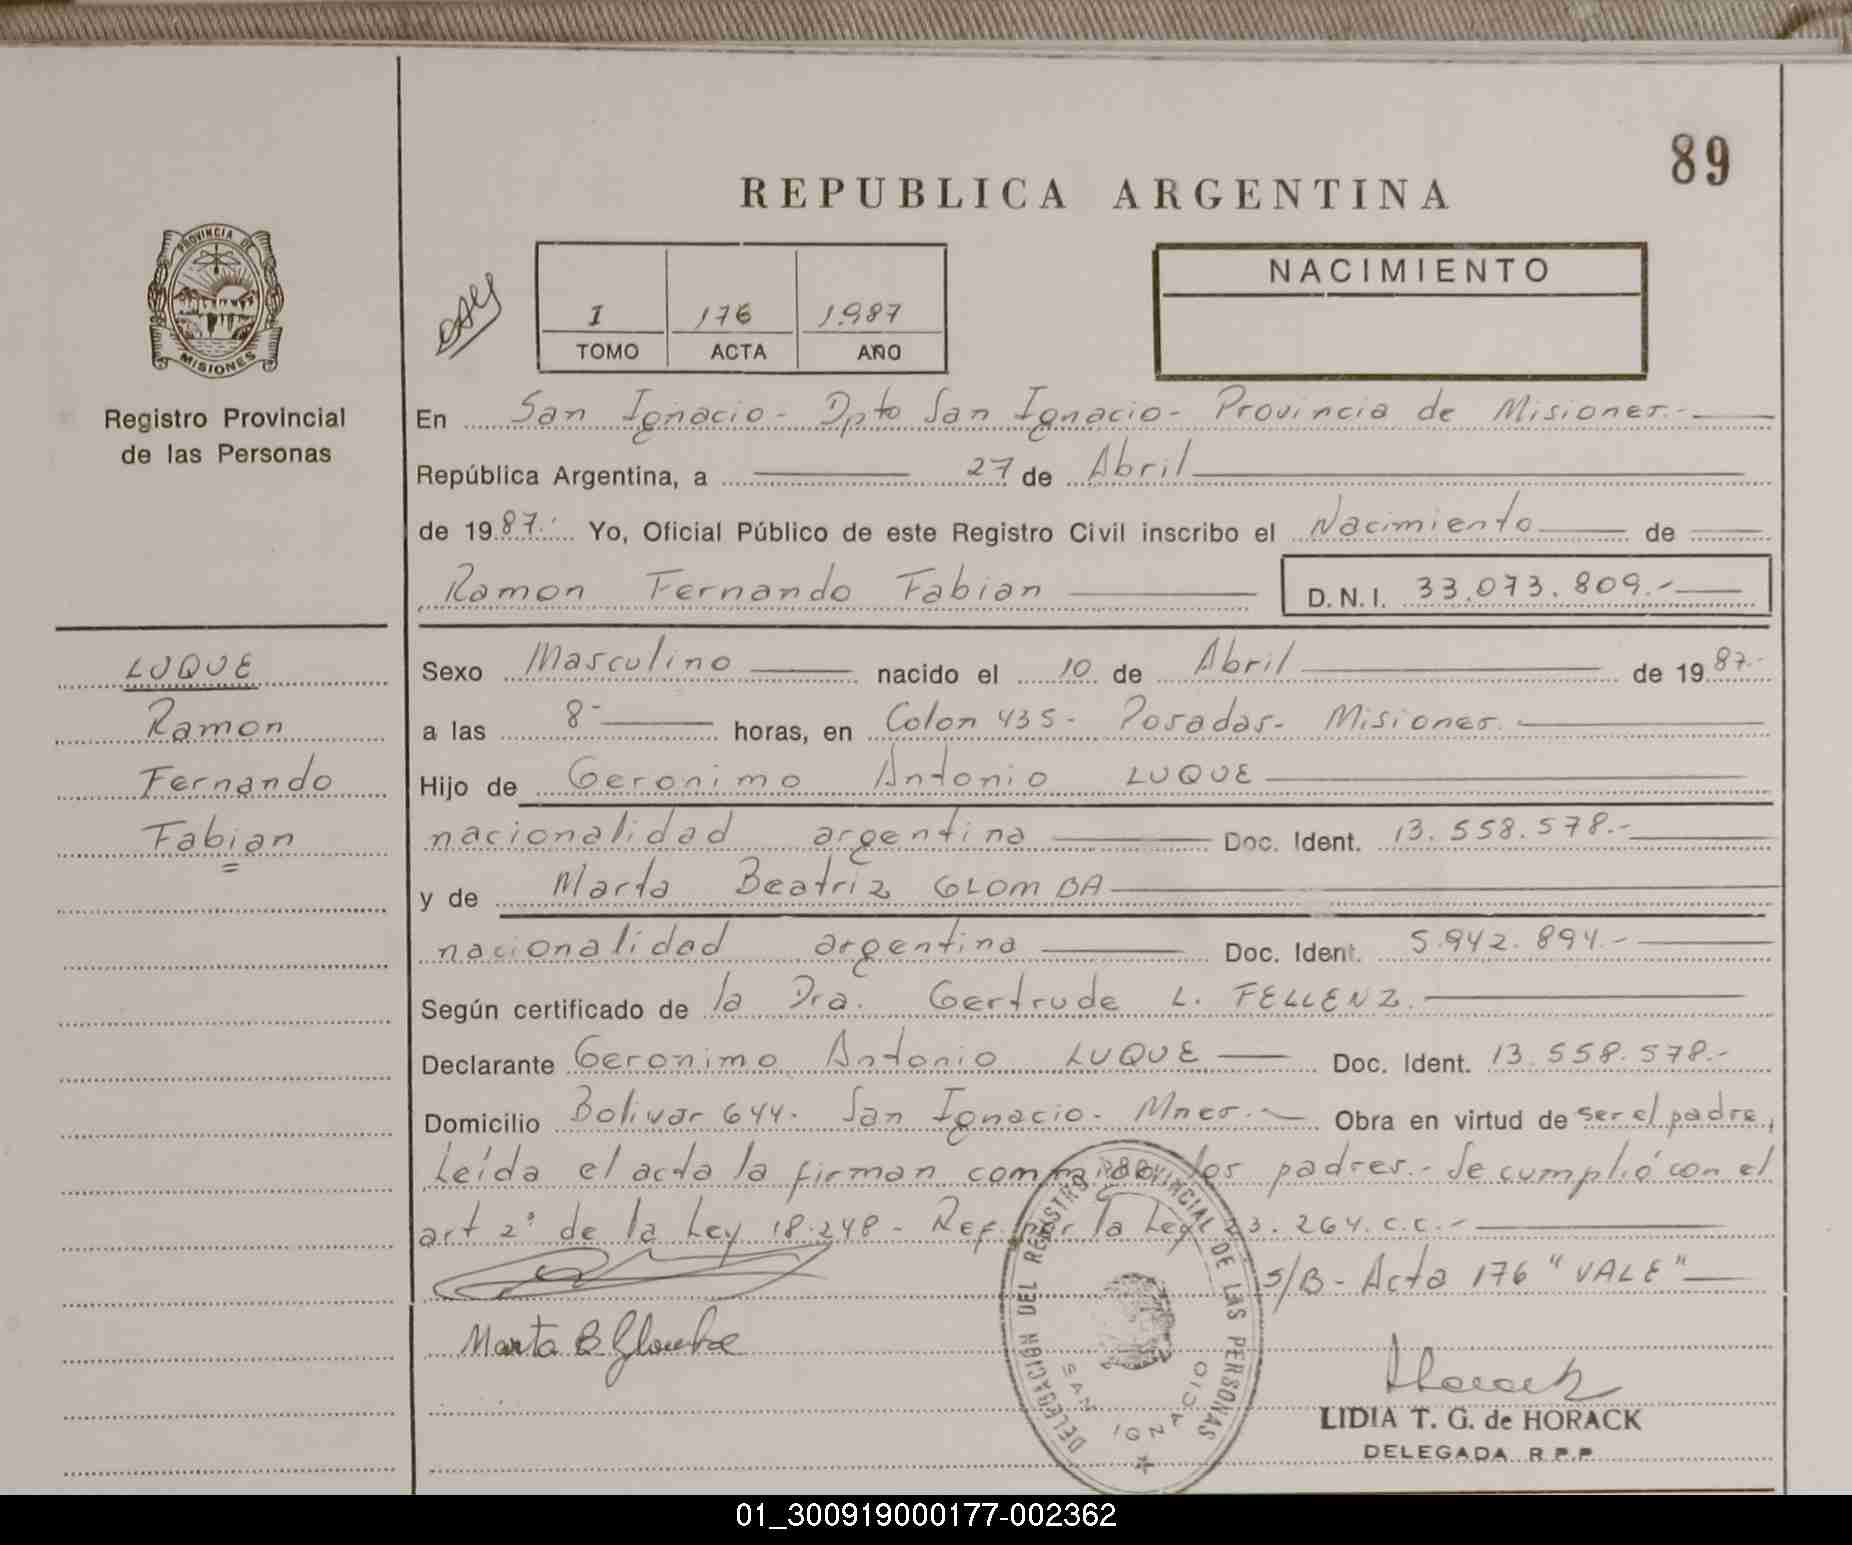 89
REPUBLICA ARGENTINA
PROVINCIA DE
MISIONES
Registro Provincial
de las Personas
I 176 1.987
TOMO ACTA AÑO
NACIMIENTO
En San Ignacio - Dpto San Ignacio - Provincia de Misiones.-
República Argentina, a 27 de Abril
de 1987.- Yo, Oficial Público de este Registro Civil inscribo el Nacimiento de
Ramon Fernando Fabian D.N.I. 33.073.809.-
LUQUE
Ramon
Fernando
Fabian
Sexo Masculino nacido el 10 de Abril de 1987.-
a las 8- horas, en Colon 435 - Posadas - Misiones.
Hijo de Geronimo Antonio LUQUE
nacionalidad argentina Doc. Ident. 13.558.578.-
y de Marta Beatriz GLOMBA
nacionalidad argentina Doc. Ident. 5.942.894.-
Según certificado de la Dra. Gertrude L. FELLENZ.
Declarante Geronimo Antonio LUQUE Doc. Ident. 13.558.578.-
Domicilio Bolivar 644. San Ignacio - Mnes.- Obra en virtud de ser el padre,
Leída el acta la firman conmigo los padres.- Se cumplió con el
art 2° de la Ley 18.248 - Ref. por la Ley 23.264.C.C.-
S/B - Acta 176 "VALE"
Marta B Glomba
DELEGACION DEL REGISTRO PROVINCIAL DE LAS PERSONAS
SAN IGNACIO
Horack
LIDIA T. G. de HORACK
DELEGADA R.P.P.
01_300919000177-002362